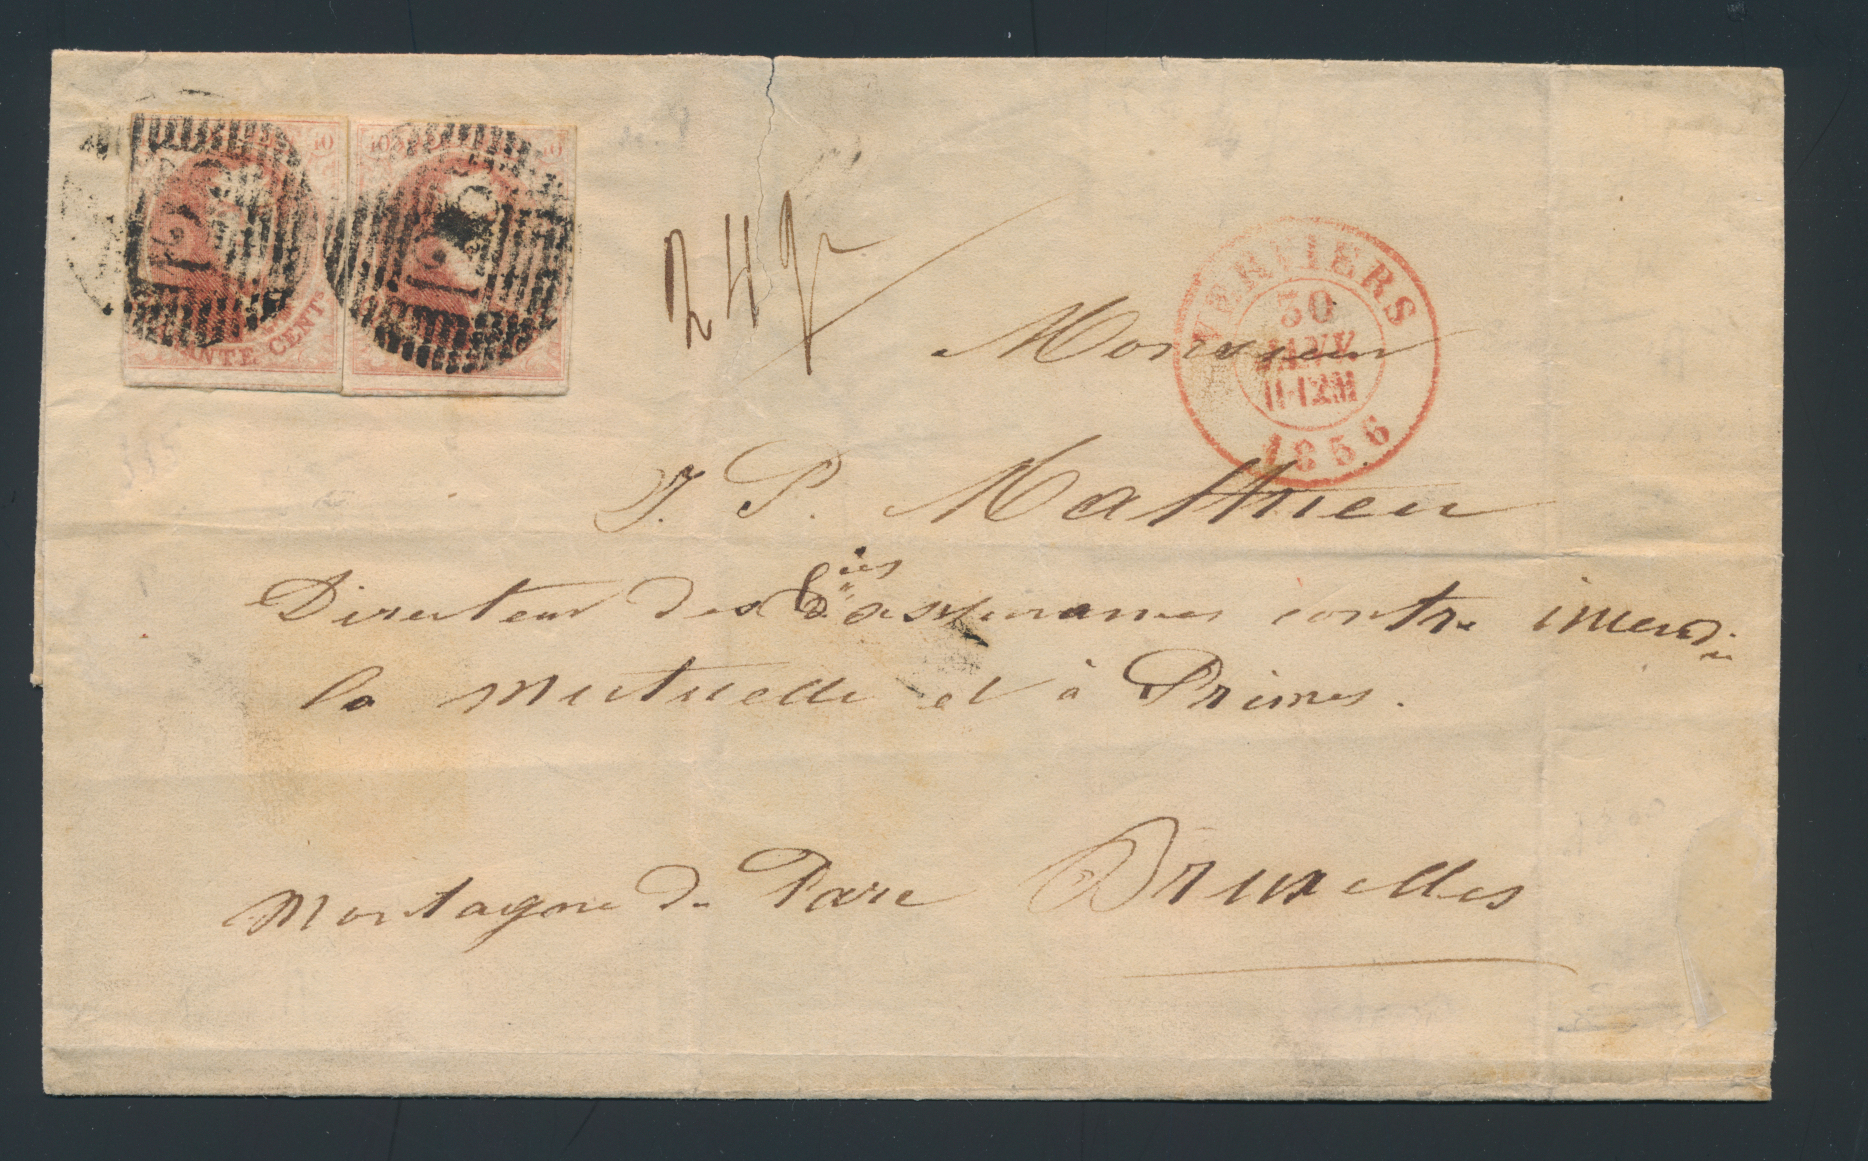 10
10
10
ANTE CENT
24 gr
VERVIERS
30
JANV
11-12M
1856
Monsieur
J. P. Mathieu
Directeur des Cies d'assurances contre incendie
la Mutuelle et à Primes.
Montagne du Parc Bruxelles